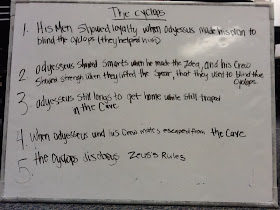 The cyclops
1. His Men Showed loyalty when odyesseus made his plan to
blind the cyclops (they helped him)
2. odyesseus Showed Smarts when he made the Idea, and his Crew
Showed strength when they lifted the Spear, that they used to blind the
cyclops
3. odyesseus still longs to get home while still traped
in the Cave
4. When odyesseus and his Crew mates escaped from the Cave
5. the Cyclops disobeys Zeus's Rules